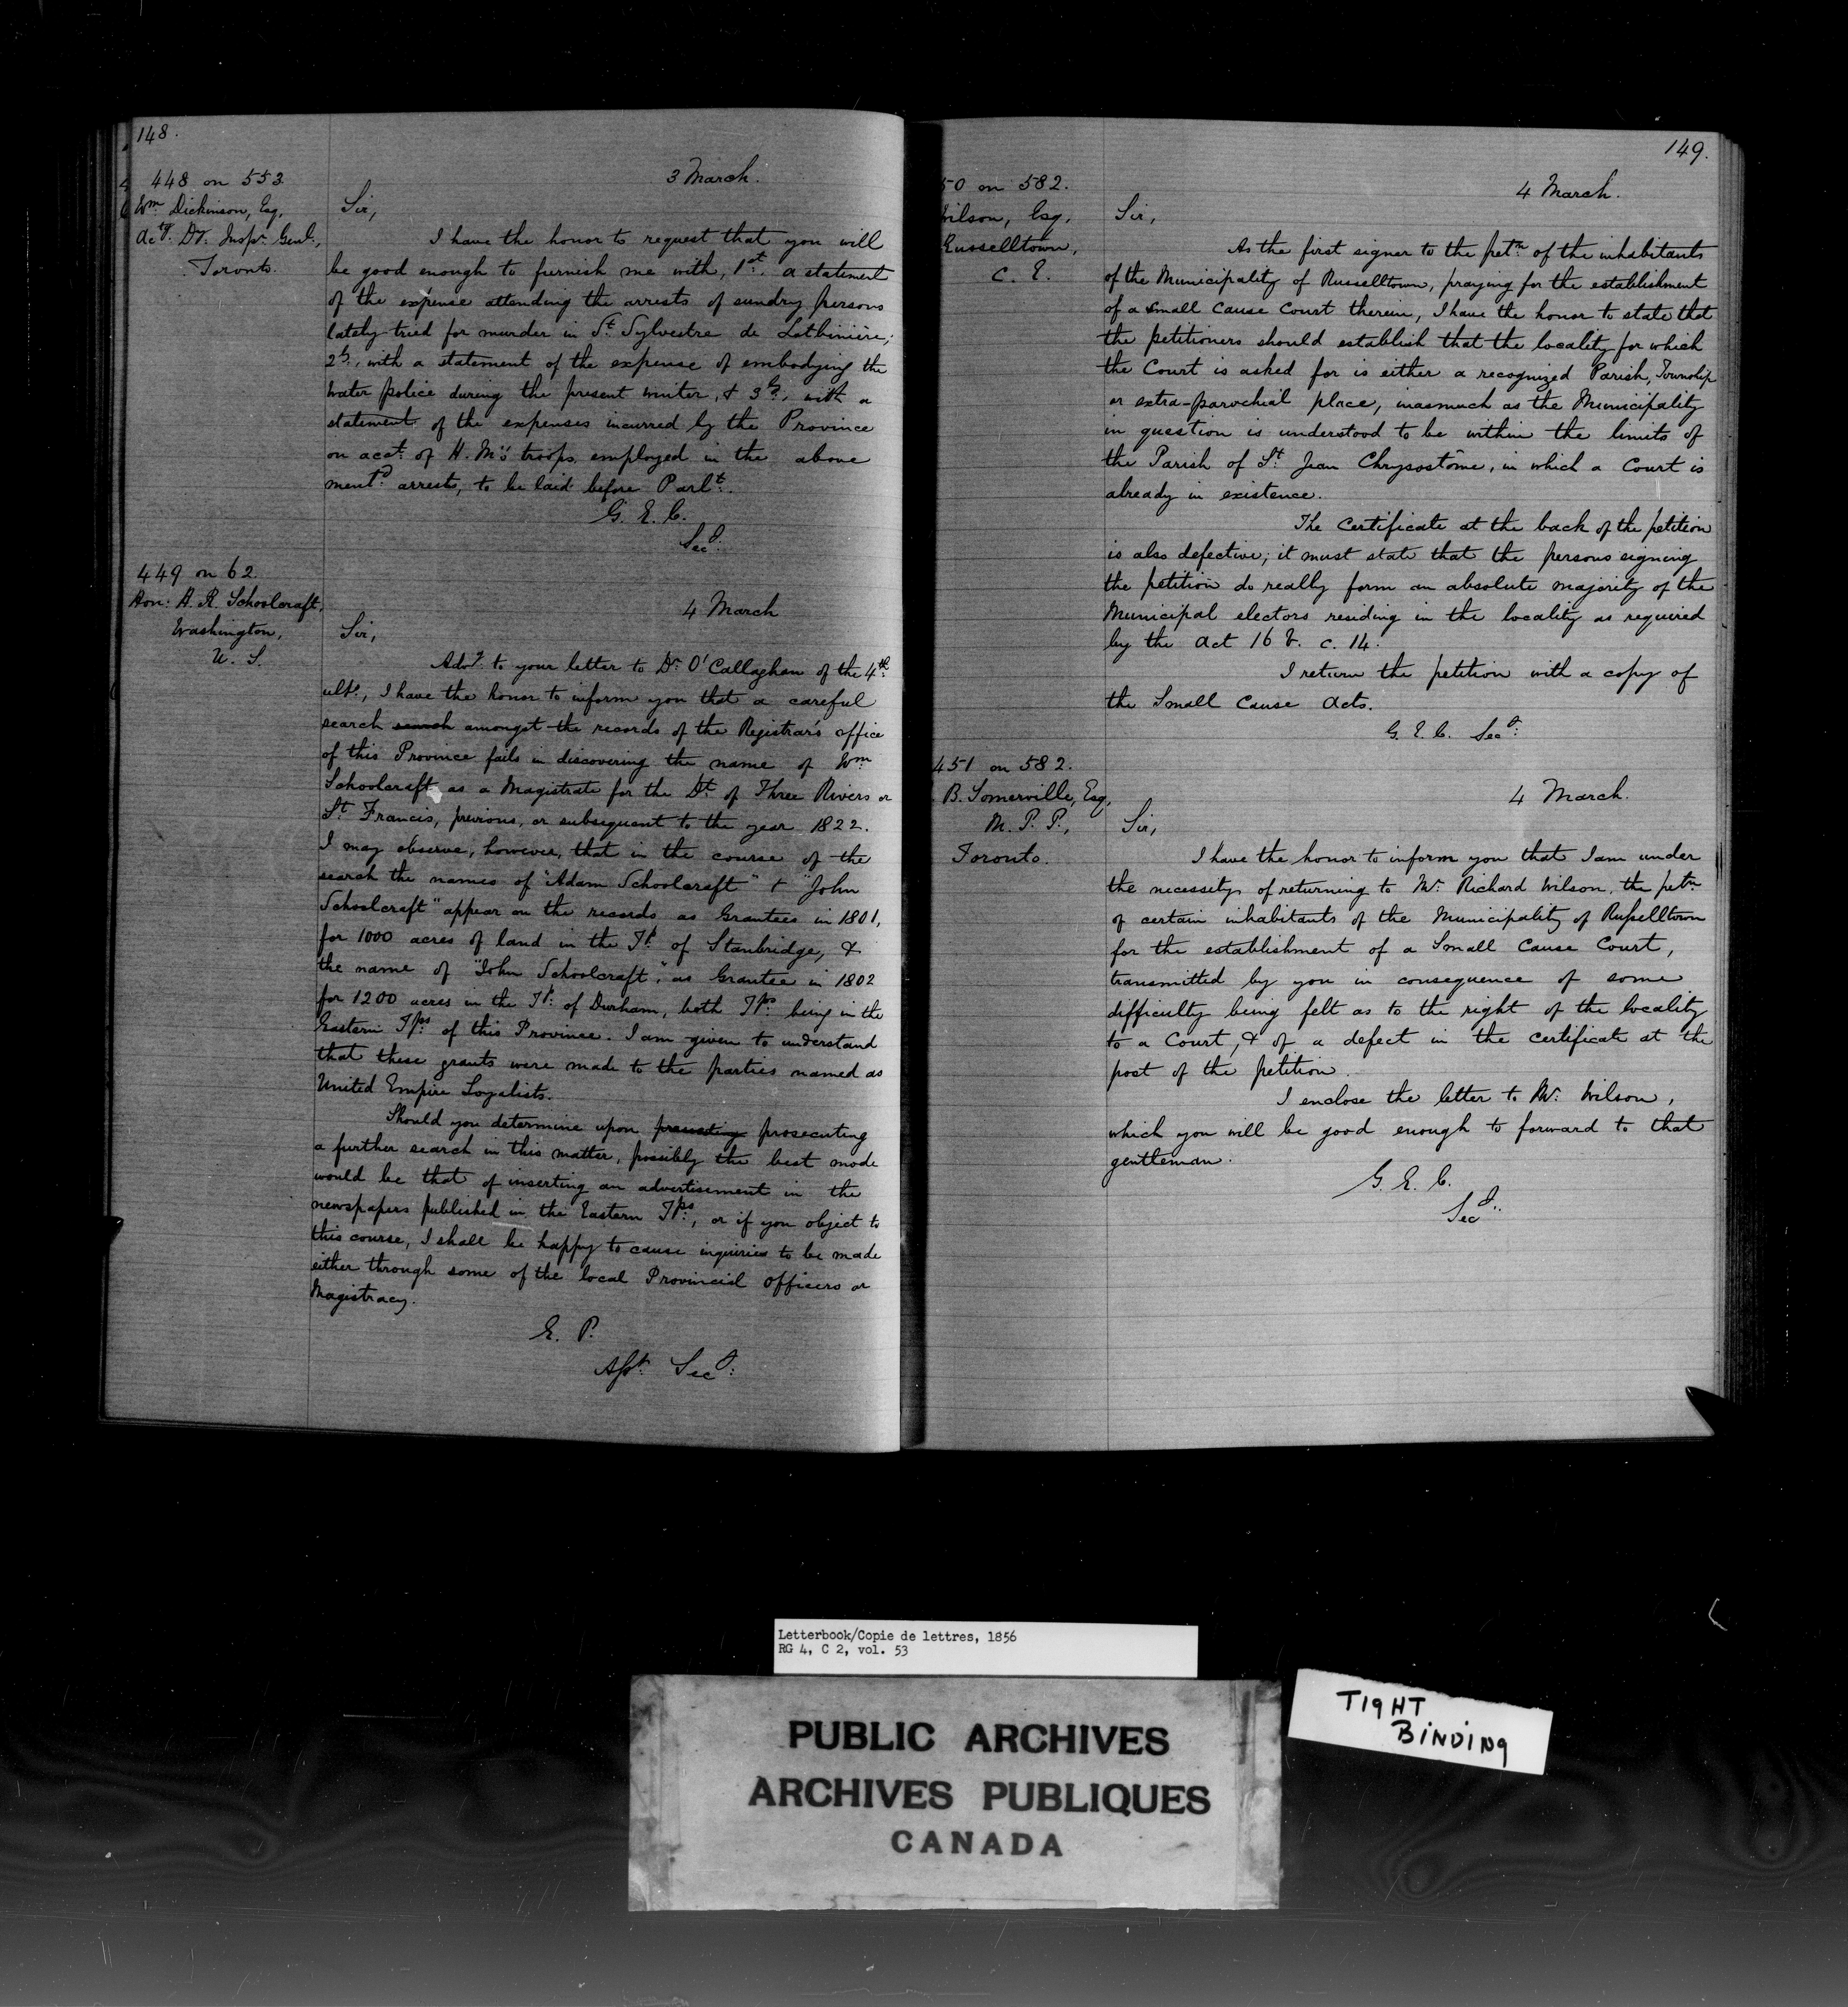 148.
448 on 553
Wm Dickinson, Esq,
Actg. Dy. Inspr. Genl.,
Toronto.
3 March.
Sir,
I have the honor to request that you will
be good enough to furnish me with, 1st. a statement
of the expense attending the arrests of sundry persons
lately tried for murder in St Sylvestre de Lotbinière;
2ly, with a statement of the expense of embodying the
water police during the present winter, & 3ly, with a
statement of the expenses incurred by the Province
on acct. of H. M's troops employed in the above
mentd. arrests, to be laid before Parlt.
G. E. C.
Secy.
449 on 62.
Hon: H. R. Schoolcraft,
Washington,
U. S.
4 March
Sir,
Advg. to your letter to Dr. O'Callaghan of the 4th
ulto., I have the honor to inform you that a careful
search search amongst the records of the Registrar's office
of this Province fails in discovering the name of Wm
Schoolcraft as a Magistrate for the Dt of Three Rivers or
St Francis, previous, or subsequent to the year 1822.
I may observe, however, that in the course of the
search the names of "Adam Schoolcraft" & "John
Schoolcraft" appear on the records as Grantees in 1801,
for 1000 acres of land in the Tp. of Stanbridge, &
the name of "John Schoolcraft," as Grantee in 1802
for 1200 acres in the Tp. of Durham, both Tps. being in the
Eastern Tps. of this Province. I am given to understand
that these grants were made to the parties named as
United Empire Loyalists.
Should you determine upon prosecuting
a further search in this matter, possibly the best mode
would be that of inserting an advertisement in the
newspapers published in the Eastern Tps., or if you object to
this course, I shall be happy to cause inquiries to be made
either through some of the local Provincial officers or
Magistracy.
E. P.
Asst. Secy.
149.
50 on 582.
Wilson, Esq,
Russelltown,
C. E.
4 March.
Sir,
As the first signer to the petn. of the inhabitants
of the Municipality of Russelltown, praying for the establishment
of a Small Cause Court therein, I have the honor to state that
the petitioners should establish that the locality for which
the Court is asked for is either a recognized Parish, Township
or extra-parochial place, inasmuch as the Municipality
in question is understood to be within the limits of
the Parish of St. Jean Chrysostôme, in which a Court is
already in existence.
The Certificate at the back of the petition
is also defective; it must state that the persons signing
the petition do really form an absolute majority of the
Municipal electors residing in the locality as required
by the Act 16 V. c. 14.
I return the petition with a copy of
the Small Cause Acts.
G. E. C. Secy.
451 on 582.
B. Somerville, Esq,
M. P. P.,
Toronto.
4 March.
Sir,
I have the honor to inform you that I am under
the necessity of returning to Mr. Richard Wilson, the petn
of certain inhabitants of the Municipality of Russelltown
for the establishment of a Small Cause Court,
transmitted by you in consequence of some
difficulty being felt as to the right of the locality
to a Court, & of a defect in the certificate at the
post of the petition.
I enclose the letter to Mr. Wilson,
which you will be good enough to forward to that
gentleman.
G. E. C.
Secy.
Letterbook/Copie de lettres, 1856
RG 4, C 2, vol. 53
PUBLIC ARCHIVES
ARCHIVES PUBLIQUES
CANADA
TIGHT
BINDING